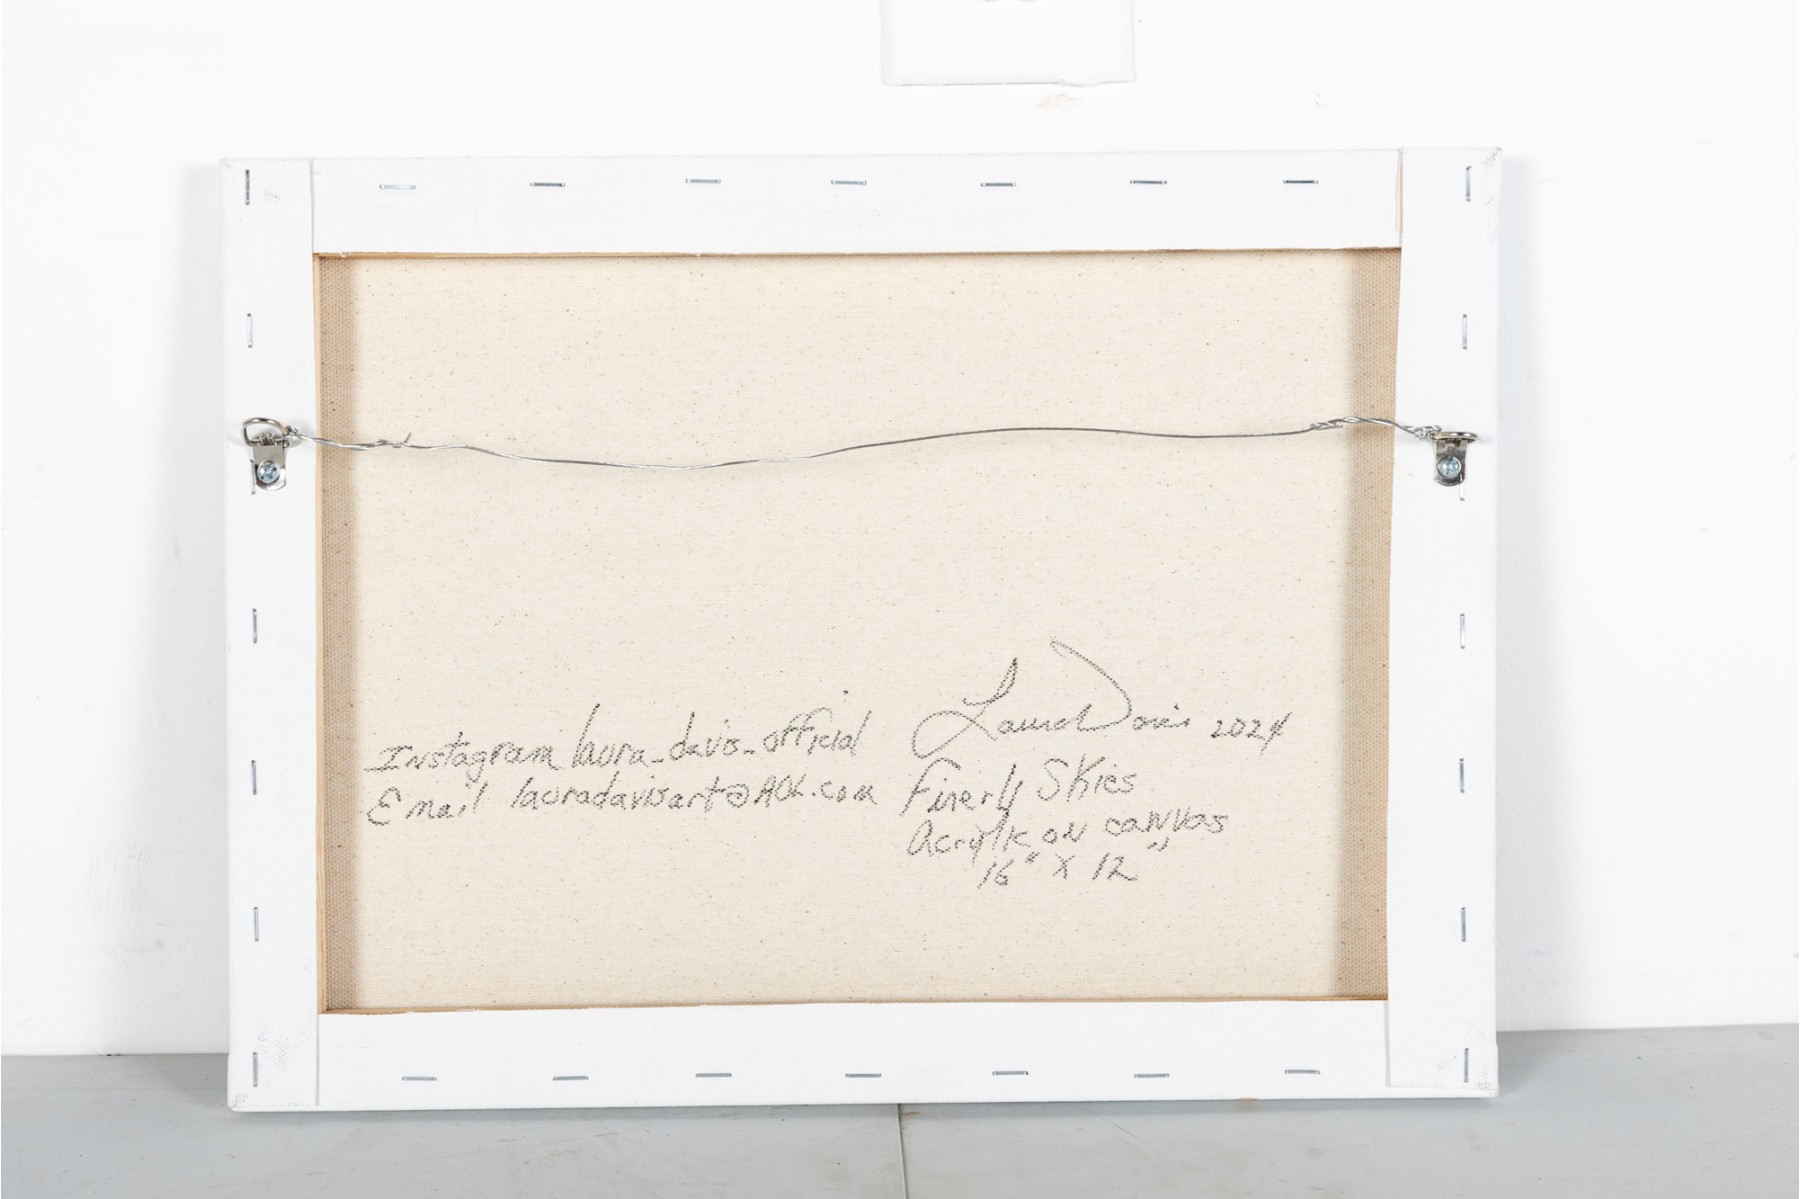 Instagram laura_davis_official
Email lauradavisart@AOL.com
Laura Davis 2024
Finerly Skies
Acrylic on canvas
16" X 12"